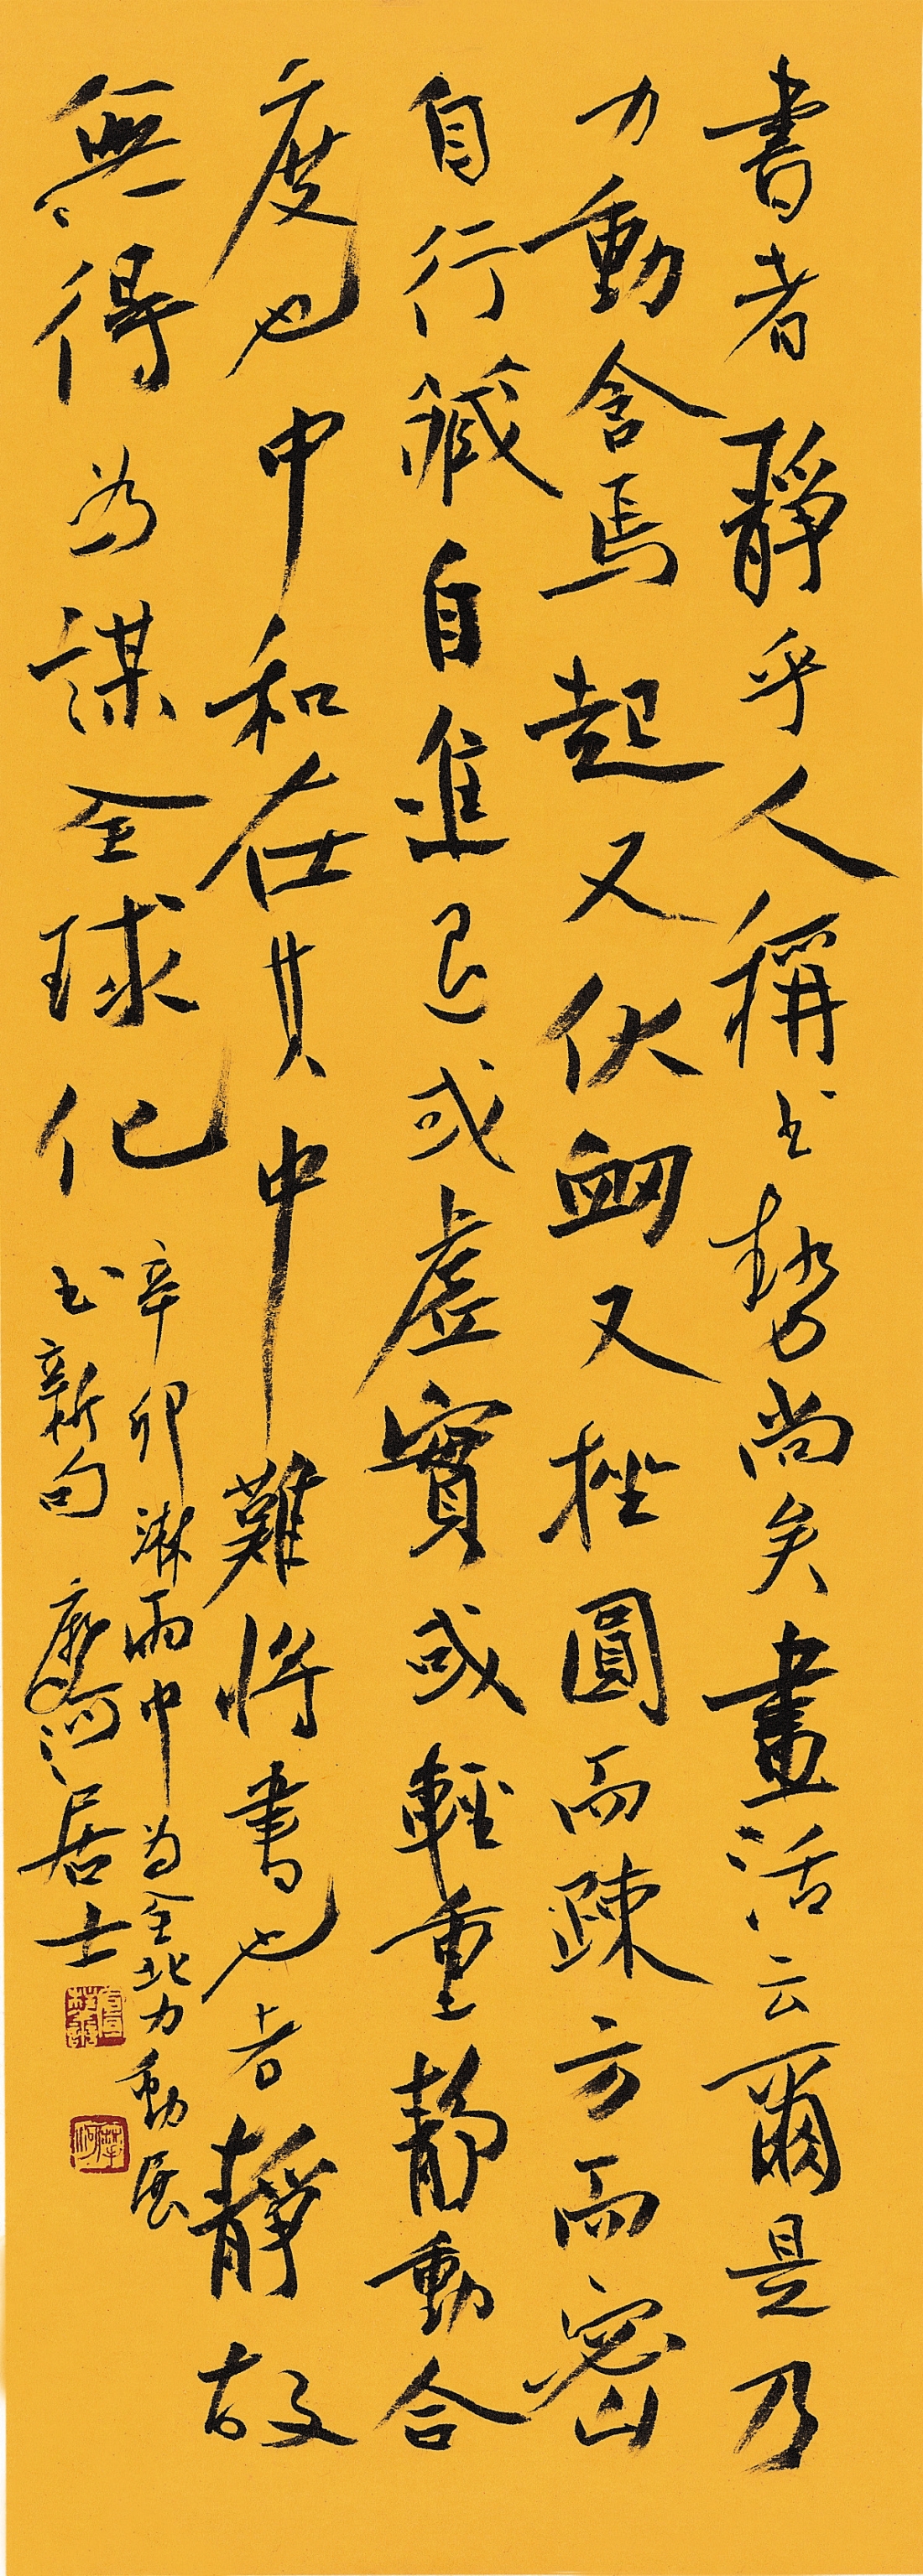 書者靜乎人稱书勢尚矣畫活云爾是乃
力動含焉起又伏衂又挫圓而疎方而密
自行藏自進退或虛實或輕重靜動合
度也中和在其中難將書也者靜故
無得为謀全球化
辛卯淋雨中为全北力動展
书新句 摩河居士
摩河